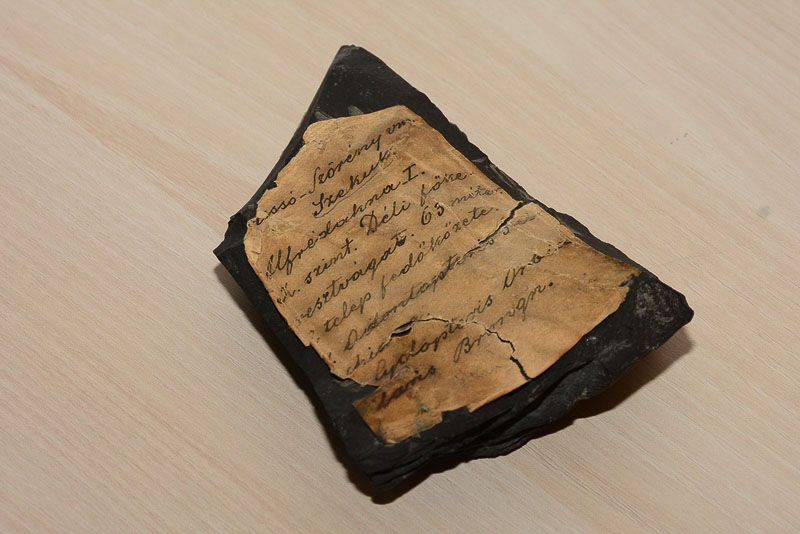 rassó-Szörény vm.
Szekul.
Alfrédakna I.
szint. Déli főke-
resztvágat. 63 méter.
telep fedőkőzete.
Odontopteris
Cyclopteris Orbi-
Brongn.